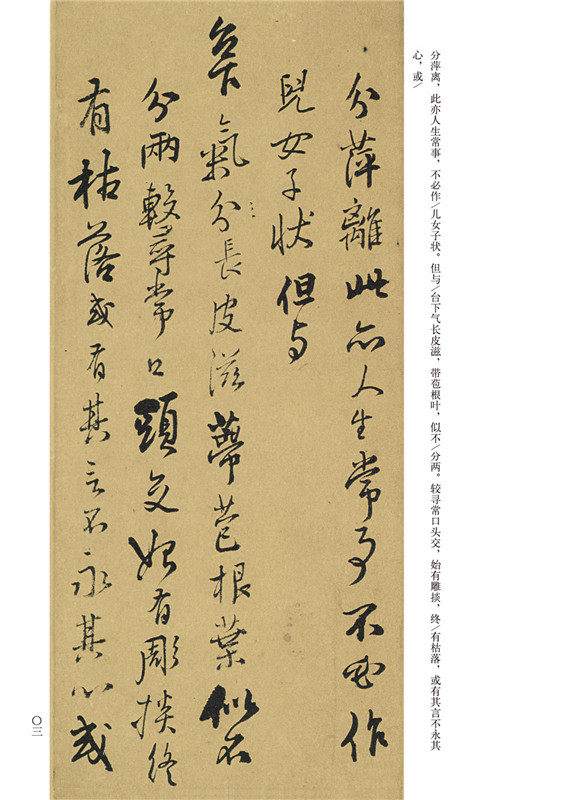 分萍离，此亦人生常事，不必作/儿女子状。但与/台下气长皮滋，带苞根叶，似不/分两。较寻常口头交，始有雕掞，终/有枯落，或有其言不永其
心，或/
分萍離此亦人生常事不必作
兒女子状但与
台下氣分長皮滋蔕苞根葉似不
分兩較尋常口頭交始有彫掞終
有枯落或有其言不永其心或
〇三